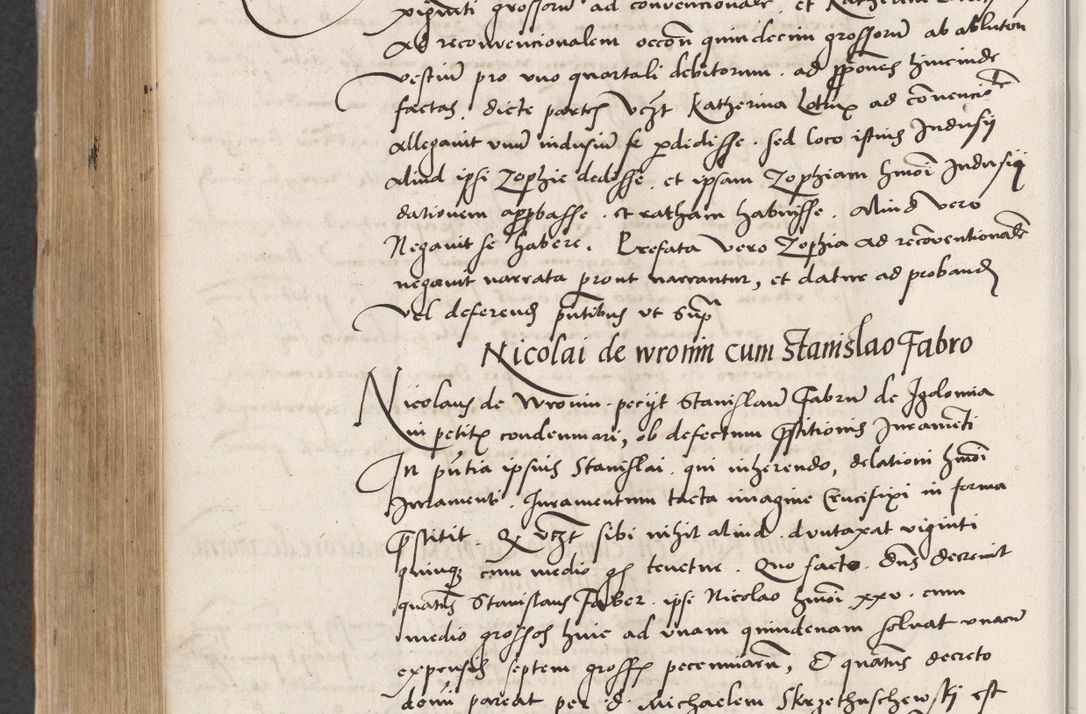 viginti grossorum ad convencionale, et Katherina
Ad reconvencionalem occõn quindecim grossorũ ab ablution
vestiũ pro vno quartali debitorum. ad ꝓpõnes hincinde
factas. dicte partes vcz̃t Katherina Lotrix ad cõvencionẽ
allegavit vnũ indusiũ se ꝑdidisse. sed loco istius Indusij
aliud ipsi Zophie dedisse. et ipsam Zophiam hmõi Indusij
dationem approbasse. et ratham habuisse. Aliud vero
Negavit se habere. Prefata vero Zophia ad recõventionalẽ
negavit narrata prout narrantur, et datur ad proband
vel deferend p̃ntibus vt Sup̃
Nicolai de wronin cum Stanislao Fabro
Nicolaus de Wronin. pecijt Stanislaũ Fabrũ de Igolomia
in petitis condemnari, ob defectum p̃stitionis Iuramẽti
In p̃ntia ipsius Stanislai. qui inherendo, delationi hmõi
Iuramenti. Iuramentum tacta imagine Crucifixi in forma
p̃stitit Q vcz̃t sibi nihil aliud. duntaxat viginti
quinqz cum medio gͦs tenetur. Quo facto. Dñs decrevit
quatñs Stanislaus Faber. ipsi Nicolao hmõi xxv. cum
medio grossos hinc ad vnam quindenam solvat vnacũ
expensis septem grossos pecunniarũ, Et quatñs decreto
domi pareat per .d. Michaelem Skrzethuschewskj est